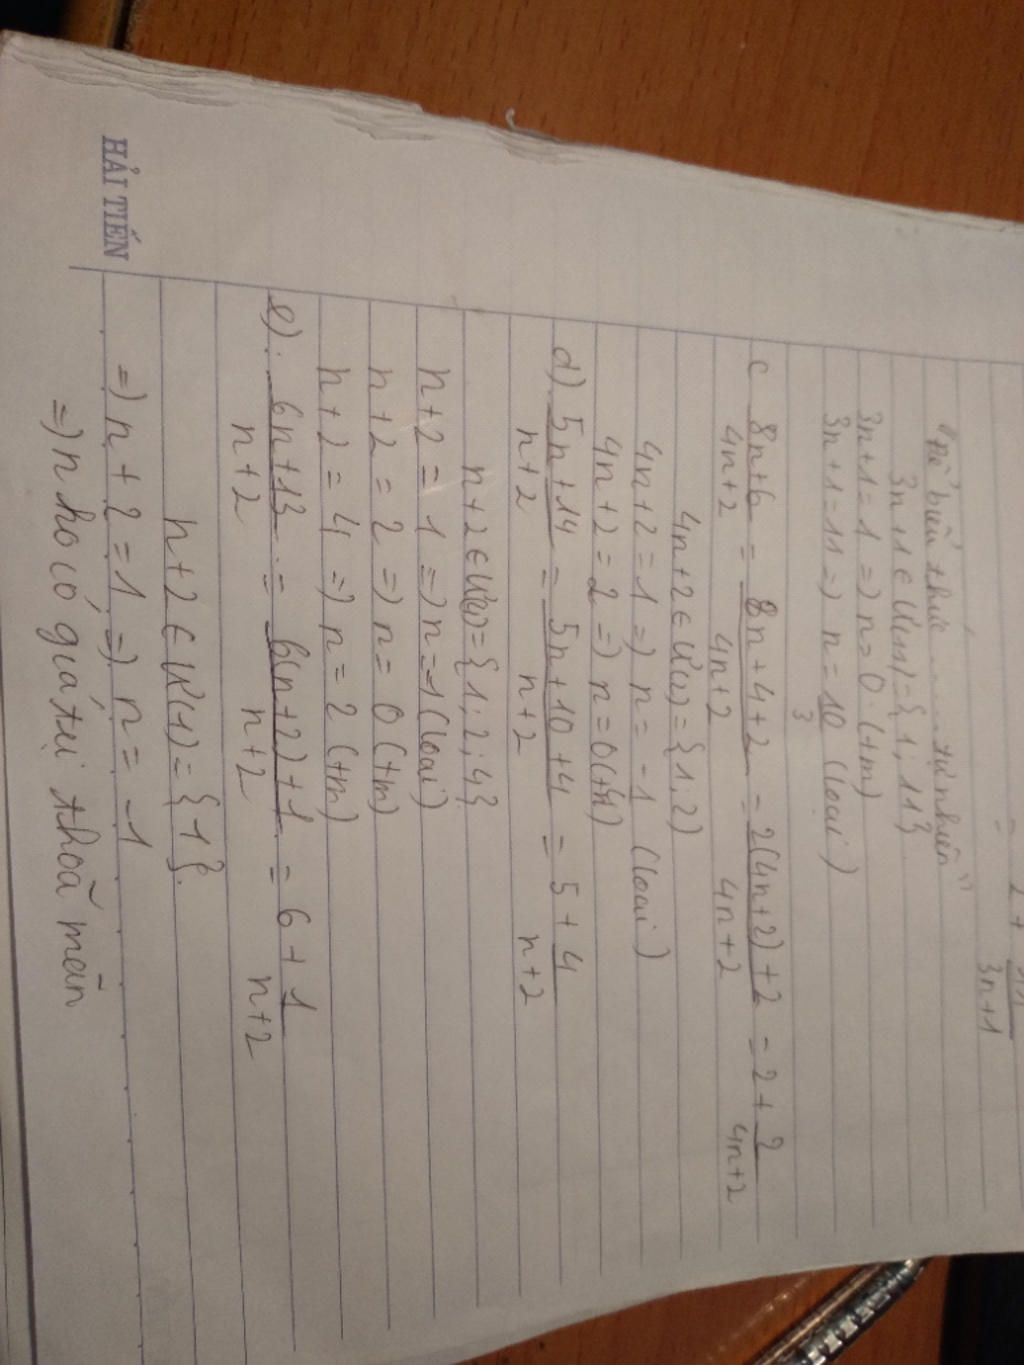 = 2 + 11/3n+1
"Để biểu thức ........ tự nhiên"
3n+1 ∈ Ư(11) = {1; 11}
3n+1 = 1 => n = 0 (t/m)
3n+1 = 11 => n = 10/3 (loại)
c 8n+6/4n+2 = 8n+4+2/4n+2 = 2(4n+2)+2/4n+2 = 2 + 2/4n+2
4n+2 ∈ Ư(2) = {1, 2}
4n+2 = 1 => n = -1 (loại)
4n+2 = 2 => n = 0 (t/m)
d) 5n+14/n+2 = 5n+10+4/n+2 = 5 + 4/n+2
n+2 ∈ Ư(4) = {1; 2; 4}
n+2 = 1 => n = -1 (loại)
n+2 = 2 => n = 0 (t/m)
n+2 = 4 => n = 2 (t/m)
e). 6n+13/n+2 = 6(n+2)+1/n+2 = 6 + 1/n+2
n+2 ∈ Ư(1) = {1}.
=> n+2 = 1 => n = -1
=> n ko có giá trị thoã mãn
HẢI TIẾN